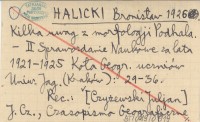 HALICKI Bronisław 1926
Kilka uwag z morfologji Podhala.
— II Sprawozdanie Naukowe za lata
1921-1925 Koła Geogr. uczniów
Uniw. Jag. (Kraków): 29-36.
Rec.: [Czyżewski Juljan]
J. Cz., Czasopismo Geograficzne